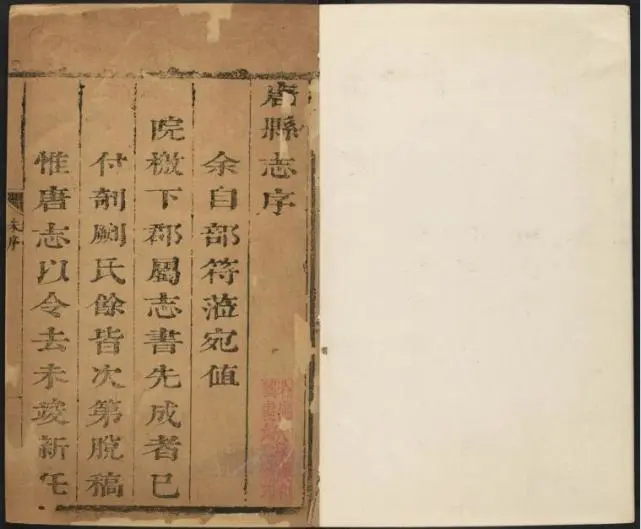 唐縣志序
余自部符蒞宛值
院檄下郡屬志書先成者已
付剞劂氏餘皆次第脫稿
惟唐志以令去未竣新任
朱序